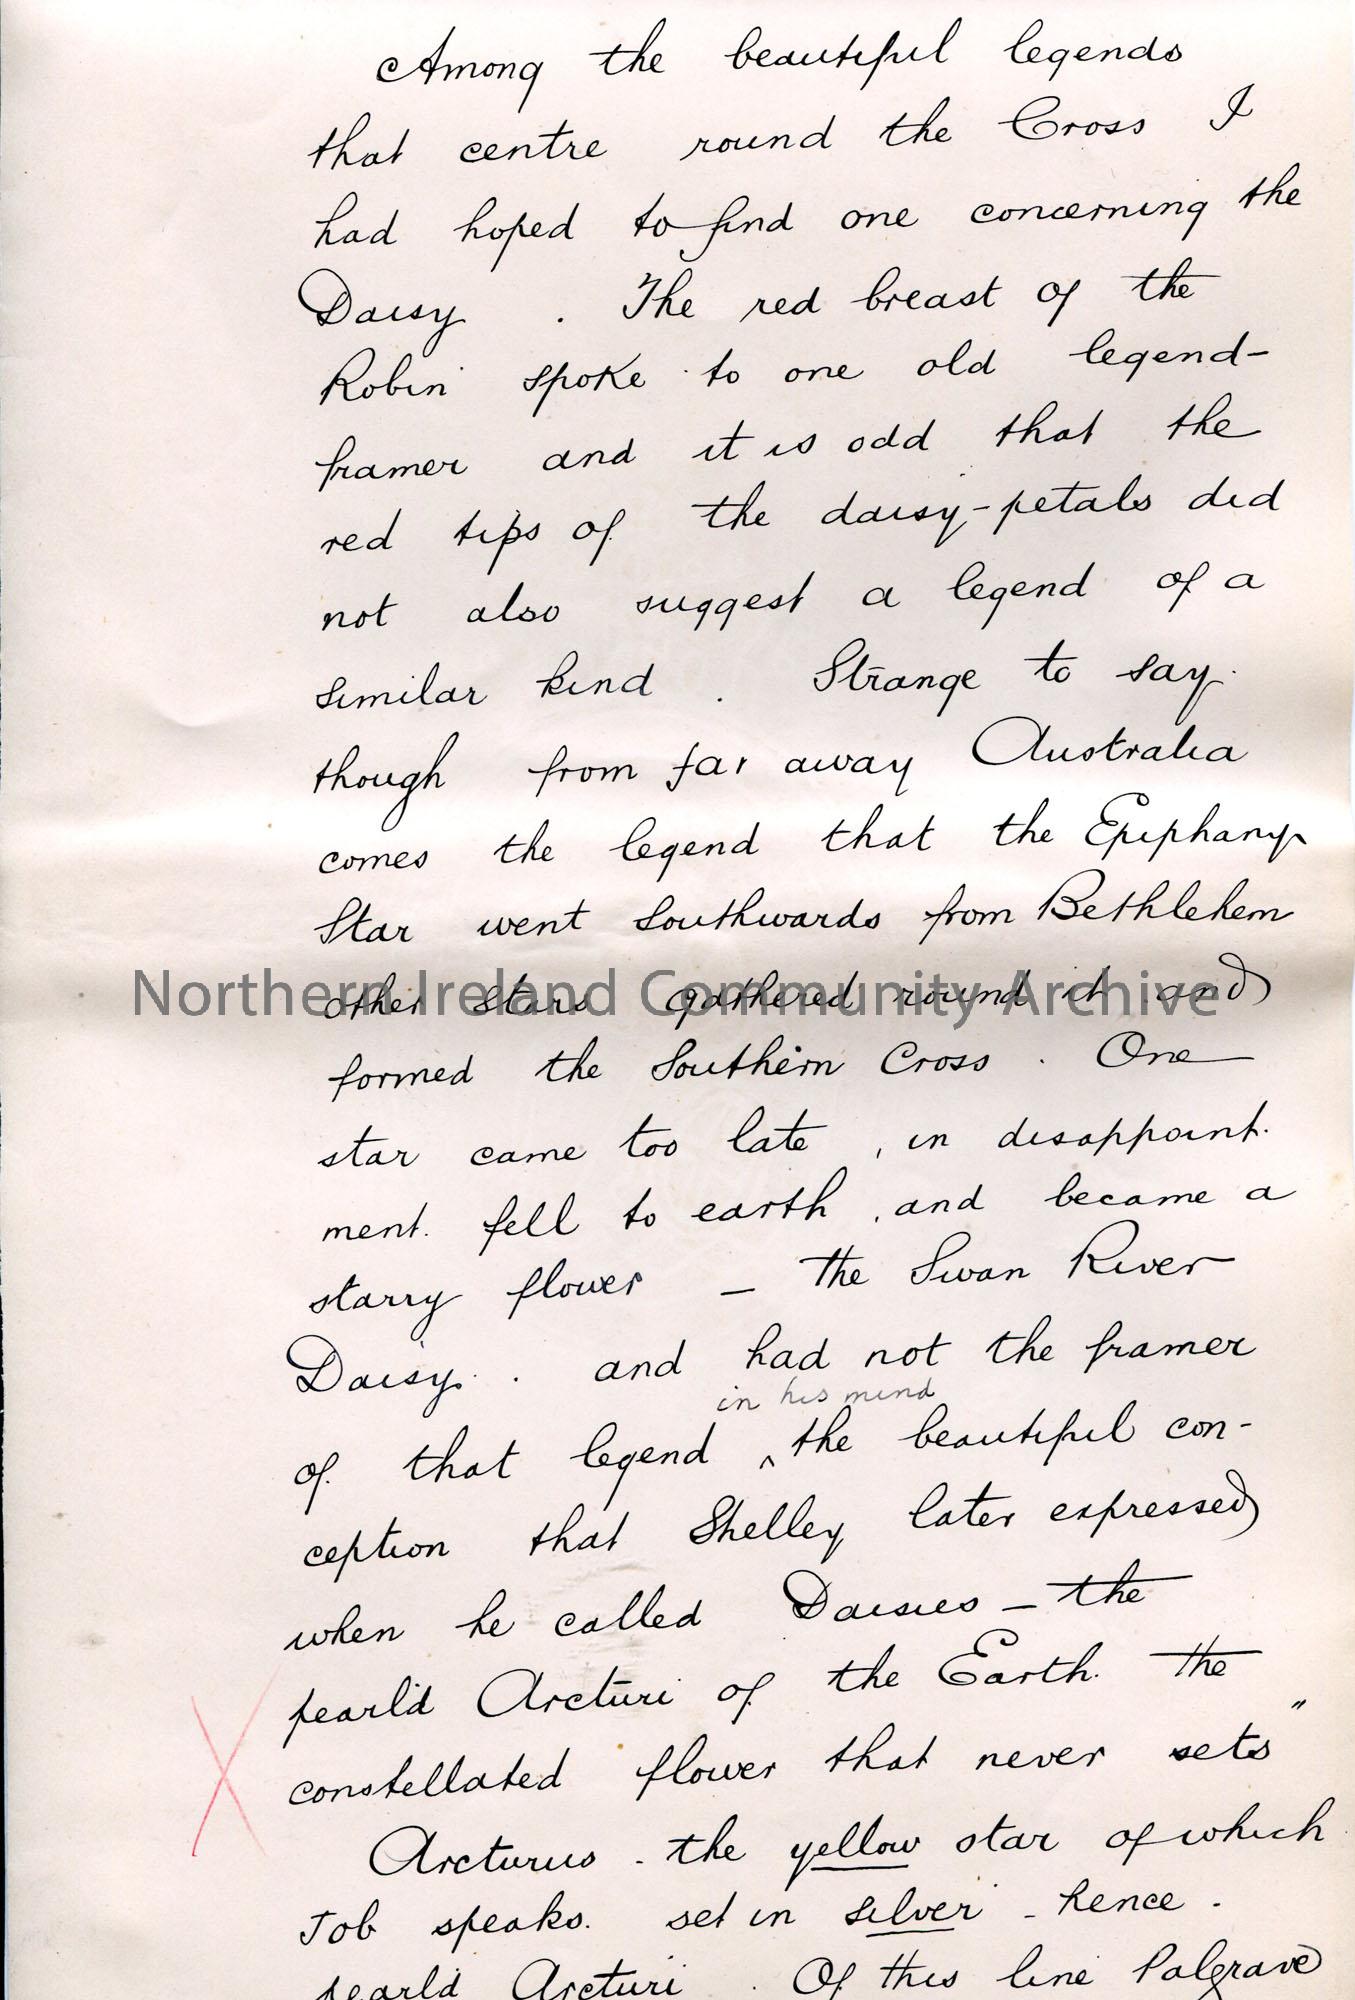 Among the beautiful legends
that centre round the Cross I
had hoped to find one concerning the
Daisy . The red breast of the
Robin spoke to one old legend-
framer and it is odd that the
red tips of the daisy-petals did
not also suggest a legend of a
similar kind . Strange to say.
though from far away Australia
comes the legend that the Epiphany
Star went Southwards from Bethlehem
other Stars gathered round it and
Northern Ireland Community Archive
formed the Southern Cross . One
star came too late , in disappoint-
ment. fell to earth , and became a
starry flower — the Swan River
Daisy . and had not the framer
in his mind
of that legend ^ the beautiful con-
ception that Shelley later expressed
when he called Daisies — the
pearl'd Arcturi of the Earth. the
constellated flower that never sets"
Arcturus - the yellow star of which
Job speaks. set in silver - hence -
pearl'd Arcturi . Of this line Palgrave